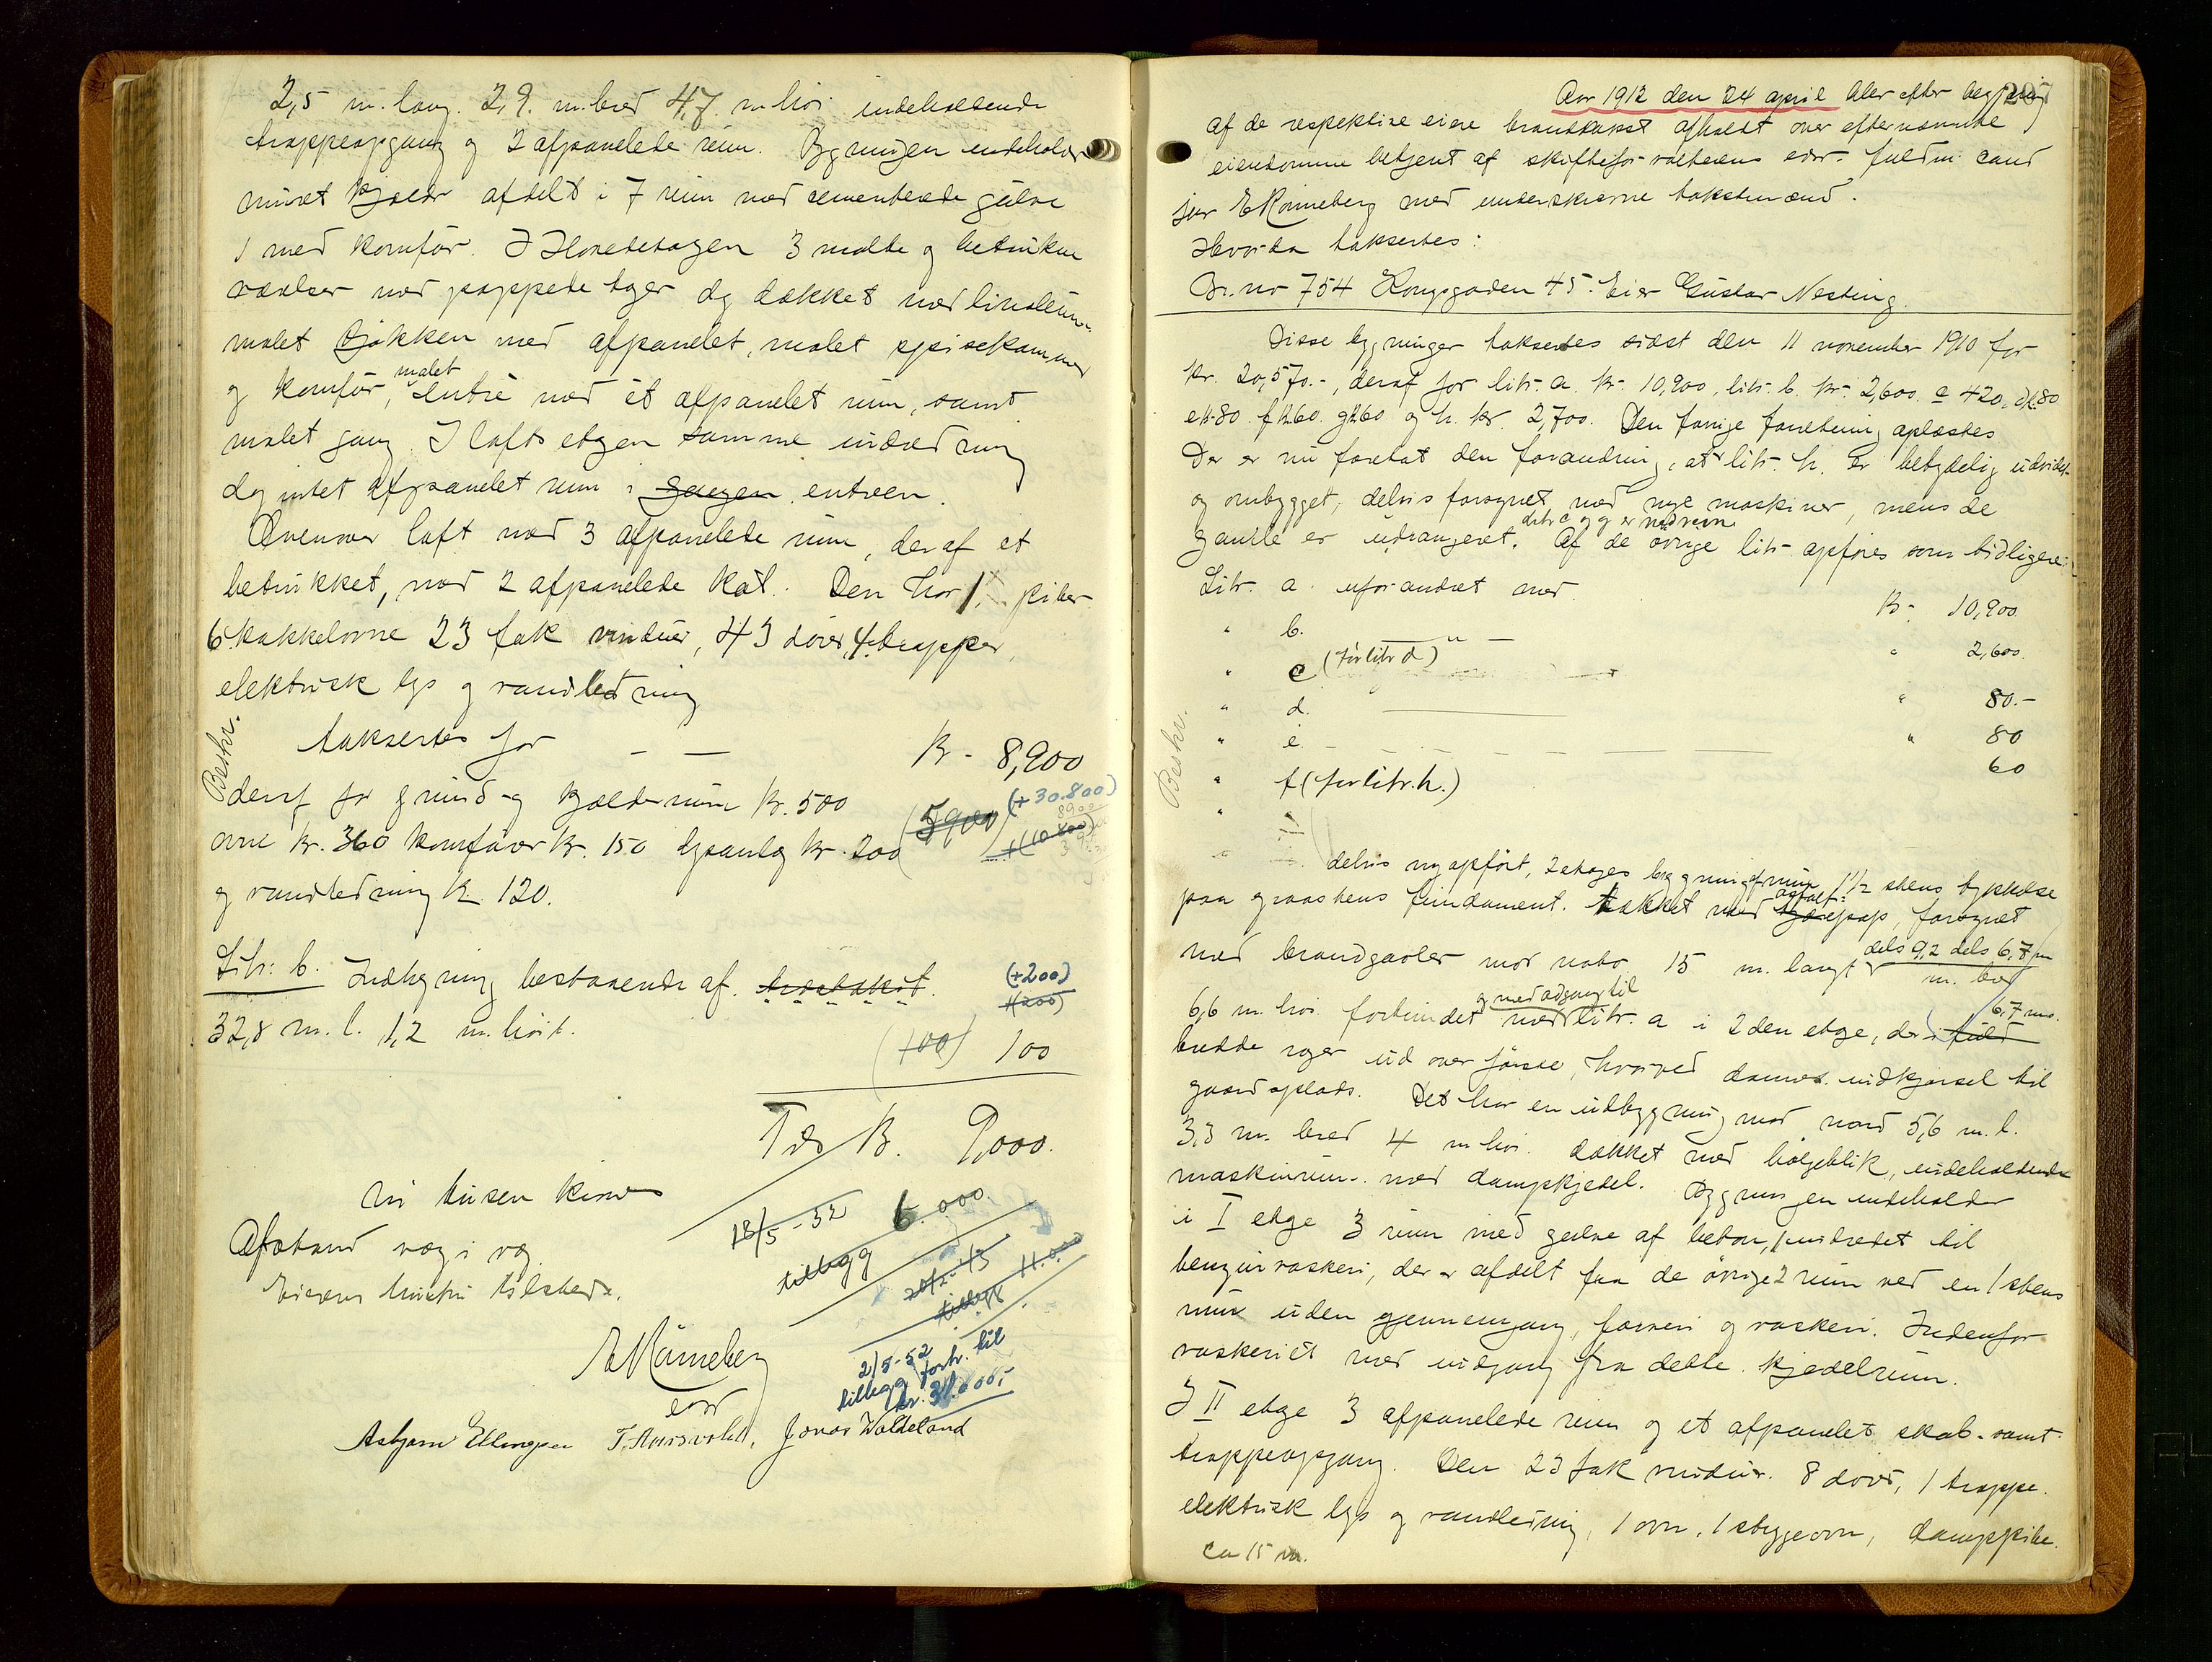 2,5 m. lang. 2,9. m. bred 4,7. m. höi indeholdende
trappeopgang og 2 afpanelede rum. Bygningen indeholder
muret kjelder afdelt i 7 rum med cementerede gulve
1 med komfür. I Hovedetagen 3 malte og betrukne
værelser med pappede tager og dækket med linoleum.
malet kjökken med afpanelet, malet spisekammer
og komfür, malet entré med et afpanelet rum, samt
malet gang. I loftsetagen samme indredning
dog intet afpanelet rum i gangen entreen.
Ovenover loft med 3 afpanelede rum, deraf et
betrukket, med 2 afpanelede kot. Den har 1 piber
6 kakkelovne 23 fak vinduer, 43 döre, 4 trapper,
elektrisk lys og vandledning
taksertes for — — Kr - 8,900
Beskr.
deraf for grund og kjelderrum Kr. 500 (+30.800)
ovne Kr. 360 komfürer Kr. 150 lysanlæg Kr. 200 (5900)
og vandledning Kr. 120.
Litr: b. Indhegning bestaaende af træstakit. (+200)
32,8 m. l. 1,2 m. höit. (100) 100
Tils Kr. 9,000.
18/5-32 6.000
tillegg
Afstand væg i væg.
Eierens hustru tilstede.
20/2-43
tillegg 11.000
2/5-52
tillegg forh. til
E Rönneberg
edsv
Asbjørn Ellingsen Jonas Waldeland
Aar 1912 den 24 april blev efter begjæring
af de respektive eiere brandtakst afholdt over efternævnte
eiendomme betjent af skifteforvalterens edsv. fuldm. cand
jur E Rönneberg med underskrevne takstmænd.
Hvorda taksertes:
Br. no 754 Kongsgaden 45. Eier Gustav Nesting.
Disse bygninger taksertes sidst den 11 november 1910 for
Kr. 20,570.-, deraf for litr. a. Kr. 10,900, litr. b. Kr. 2,600. c 420, d k. 80
e k. 80. f k. 60. g k. 60 og h. kr. 2,700. Den forrige forretning oplæstes
Der er nu foretat den forandring, at litr. h. er betydelig udvidet
og ombygget, delvis forsynet med nye maskiner, mens de
gamle er udrangeret. litr c og g er nedrevne. Af de övrige litr. opföres som tidligere:
Litr. a uforandret med Kr - 10,900
" b. " — " 2,600.
" c (för litr d) " 80.-
" d. " 80
" e. 60
" f (för litr. h.)
Beskr.
delvis nyopfört, 2 etages bygning af mur 1 1/2 stens tykkelse
paa graastens fundament. Tækket med asfalt- pap, forsynet
med brandgavler mod nabo. 15 m. langt dels 9,2 dels 6,7 m
m. bred
6,6 m. höi forbundet og med adgang til med litr. a i 2den etage, der i fuld 6,7 ms.
bredde rager ud over første, hvorved dannes indkjørsel til
gaardsplads. Det har en udbygning mod nord 5,6 m. l.
3,3 m. bred 4 m höi. dækket med bölgeblik, indeholdende
maskinrum med dampkjedel. Bygningen indeholder
i I etage 3 rum med gulve af beton, 1 indredet til
benzinvaskeri, der er afdelt fra de övrige 2 rum ved en 1 stens
mur uden gjennemgang, farveri og vaskeri. Indenfor
vaskeriet med indgang fra dette kjedelrum.
I II etage 3 afpanelede rum og et afpanelet skab - samt
trappeopgang. Den 23 fak vinduer. 8 döre, 1 trappe.
elektrisk lys og vandledning, 1 ovn, 1 strygeovn, damppibe.
ca 15 m.